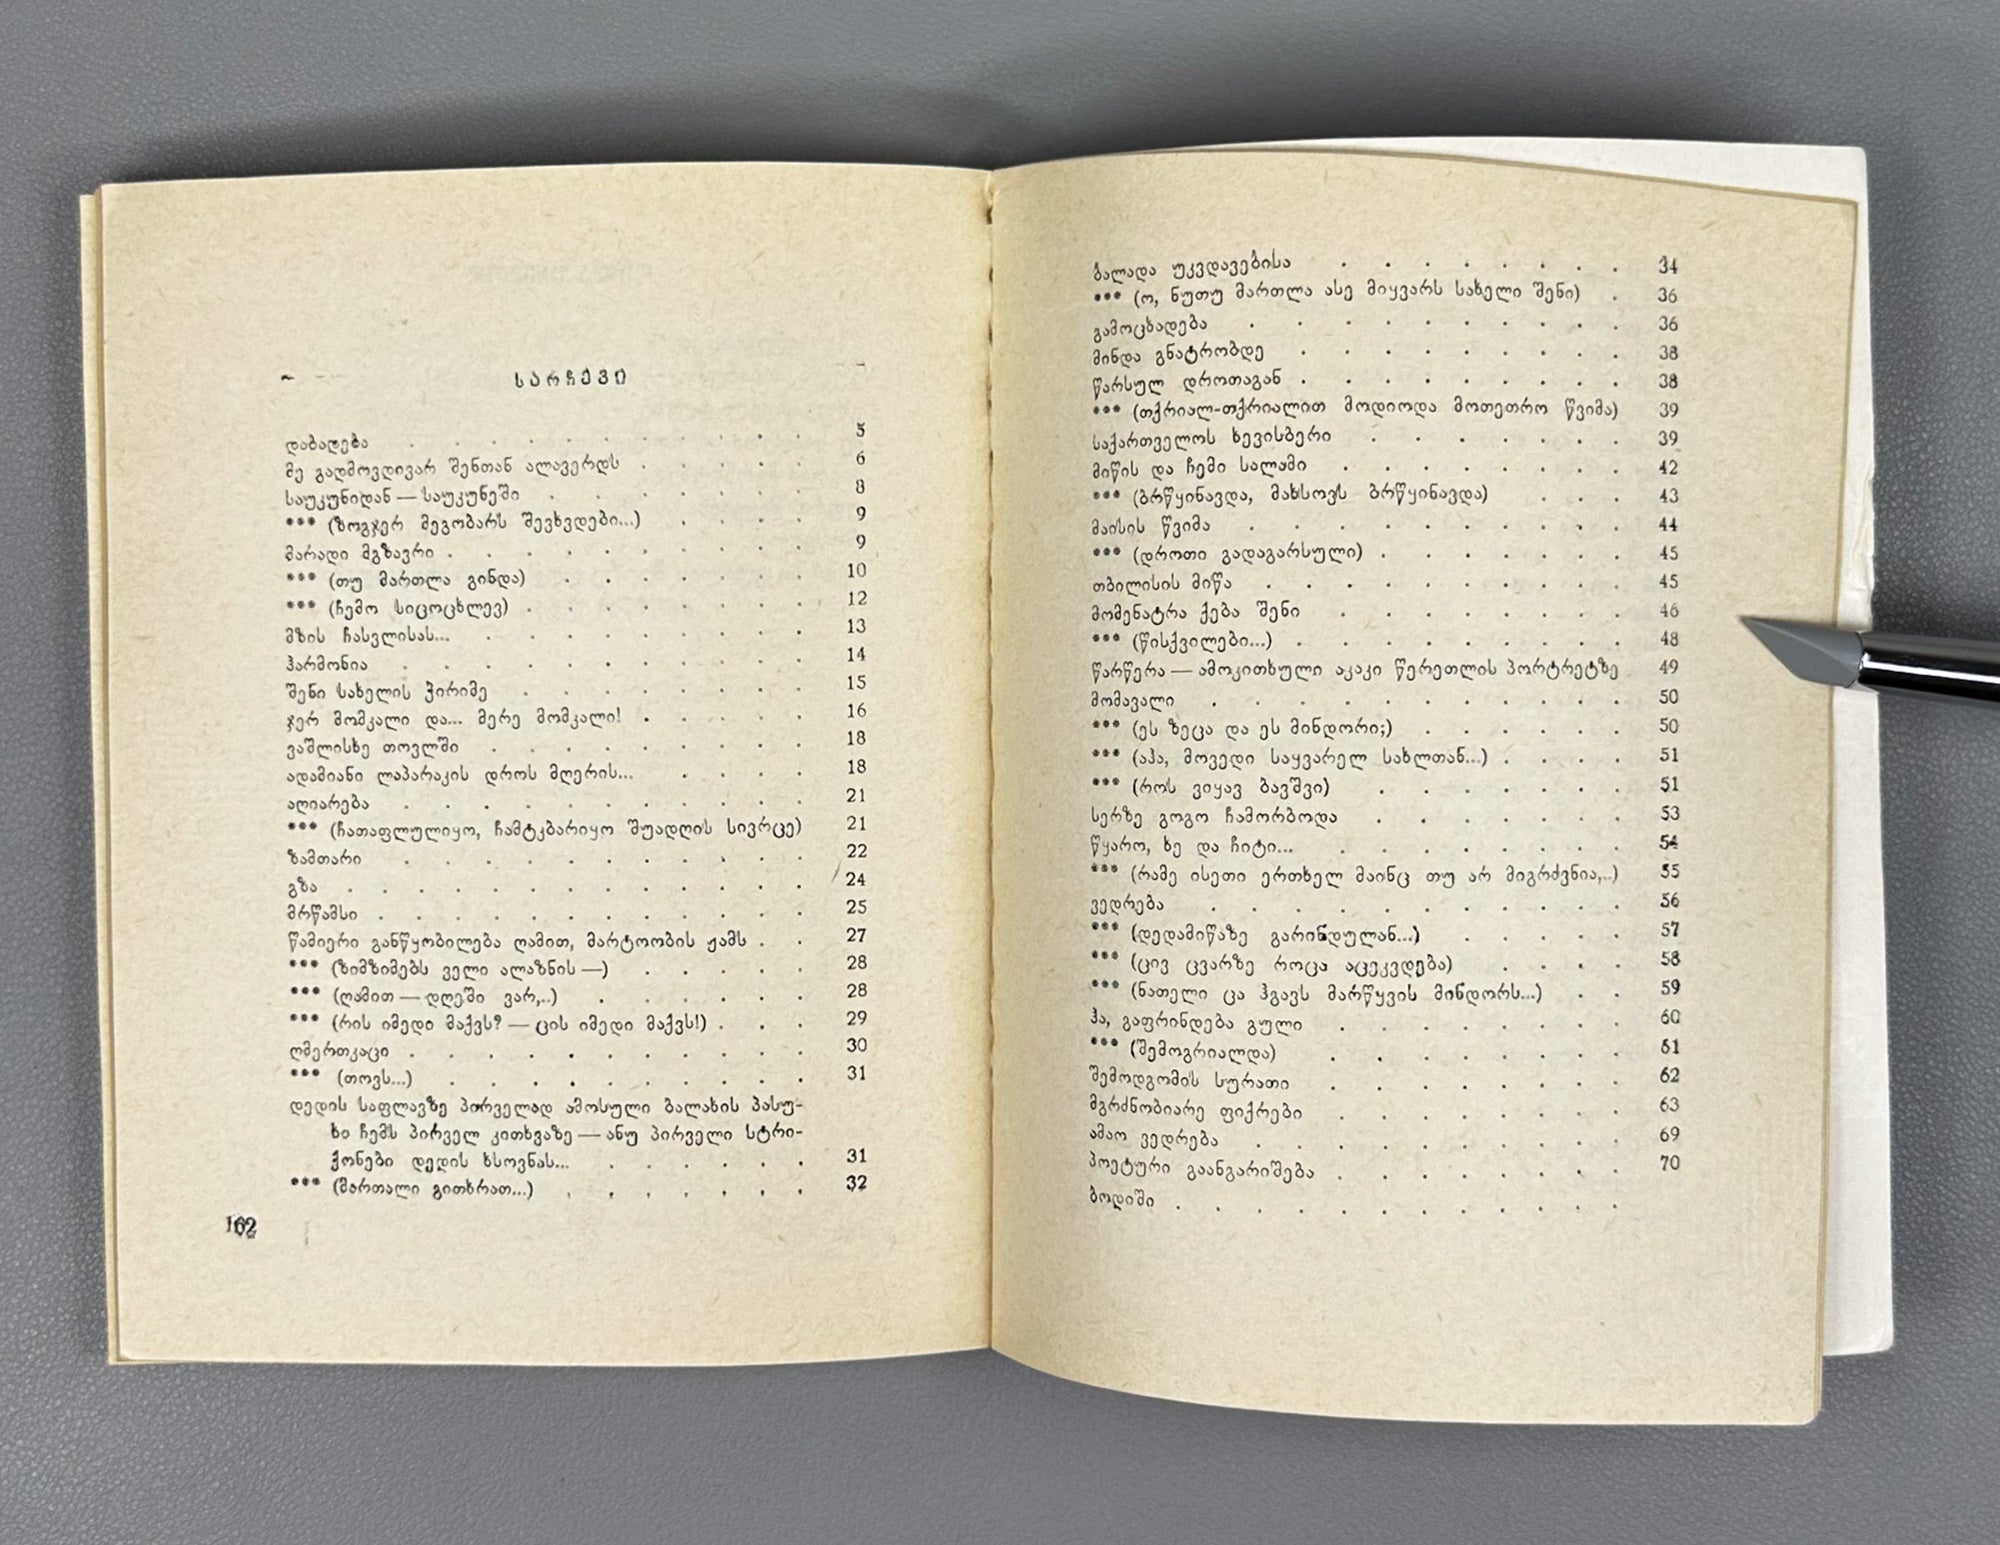 სარჩევი
დაბადება . . . . . . . . . 5
მე გადმოვდივარ შენთან ალავერდს . . . . . 6
საუკუნიდან — საუკუნეში . . . . . . 8
*** (ზოგჯერ მეგობარს შევხვდები...) . . . . 9
მარადი მგზავრი . . . . . . . . . 9
*** (თუ მართლა გინდა) . . . . . . 10
*** (ჩემო სიცოცხლევ) . . . . . . . 12
მზის ჩასვლისას... . . . . . . . . 13
ჰარმონია . . . . . . . . . . 14
შენი სახელის ჭირიმე . . . . . . . 15
ჯერ მომკალი და... მერე მომკალი! . . . . . 16
ვაშლისხე თოვლში . . . . . . . . 18
ადამიანი ლაპარაკის დროს მღერის... . . . . 18
აღიარება . . . . . . . . . . 21
*** (ჩათაფლულიყო, ჩამტკბარიყო შუადღის სივრცე) 21
ზამთარი . . . . . . . . . . 22
გზა . . . . . . . . . . . 24
მრწამსი . . . . . . . . . . 25
წამიერი განწყობილება ღამით, მარტოობის ჟამს . . 27
*** (ზიმზიმებს ველი ალაზნის —) . . . . . 28
*** (ღამით — დღეში ვარ,..) . . . . . . 28
*** (რის იმედი მაქვს? — ცის იმედი მაქვს!) . . . 29
ღმერთკაცი . . . . . . . . . . 30
*** (თოვს...) . . . . . . . . . 31
დედის საფლავზე პირველად ამოსული ბალახის პასუ-
ხი ჩემს პირველ კითხვაზე — ანუ პირველი სტრი-
ქონები დედის ხსოვნას... . . . . . . 31
*** (მართალი გითხრათ...) . . . . . . . 32
162
ბალადა უკვდავებისა . . . . . . . . 34
*** (ო, ნუთუ მართლა ასე მიყვარს სახელი შენი) . 36
გამოცხადება . . . . . . . . . . 36
მინდა გნატრობდე . . . . . . . . . 38
წარსულ დროთაგან . . . . . . . . . 38
*** (თქრიალ-თქრიალით მოდიოდა მოთეთრო წვიმა) 39
საქართველოს ხევისბერი . . . . . . . 39
მიწის და ჩემი სალამი . . . . . . . . 42
*** (ბრწყინავდა, მახსოვს ბრწყინავდა) . . . 43
მაისის წვიმა . . . . . . . . . . 44
*** (დროთი გადაგარსული) . . . . . . . 45
თბილისის მიწა . . . . . . . . . . 45
მომენატრა ქება შენი . . . . . . . . 46
*** (წისქვილები...) . . . . . . . . . 48
წარწერა — ამოკითხული აკაკი წერეთლის პორტრეტზე 49
მომავალი . . . . . . . . . . . 50
*** (ეს ზეცა და ეს მინდორი;) . . . . . . 50
*** (აჰა, მოვედი საყვარელ სახლთან...) . . . . 51
*** (როს ვიყავ ბავშვი) . . . . . . . 51
სერზე გოგო ჩამორბოდა . . . . . . . 53
წყარო, ხე და ჩიტი... . . . . . . . . 54
*** (რამე ისეთი ერთხელ მაინც თუ არ მიგრძვნია,..) 55
ვედრება . . . . . . . . . . . 56
*** (დედამიწაზე გარინდულან...) . . . . . 57
*** (ცივ ცვარზე როცა აცეკვდება) . . . . 58
*** (ნათელი ცა ჰგავს მარწყვის მინდორს...) . . 59
ჰა, გაფრინდება გული . . . . . . . . 60
*** (შემოგრიალდა) . . . . . . . . 61
შემოდგომის სურათი . . . . . . . . 62
მგრძნობიარე ფიქრები . . . . . . . . 63
ამაო ვედრება . . . . . . . . . . 69
პოეტური გაანგარიშება . . . . . . . . 70
ბოდიში . . . . . . . . . . . .